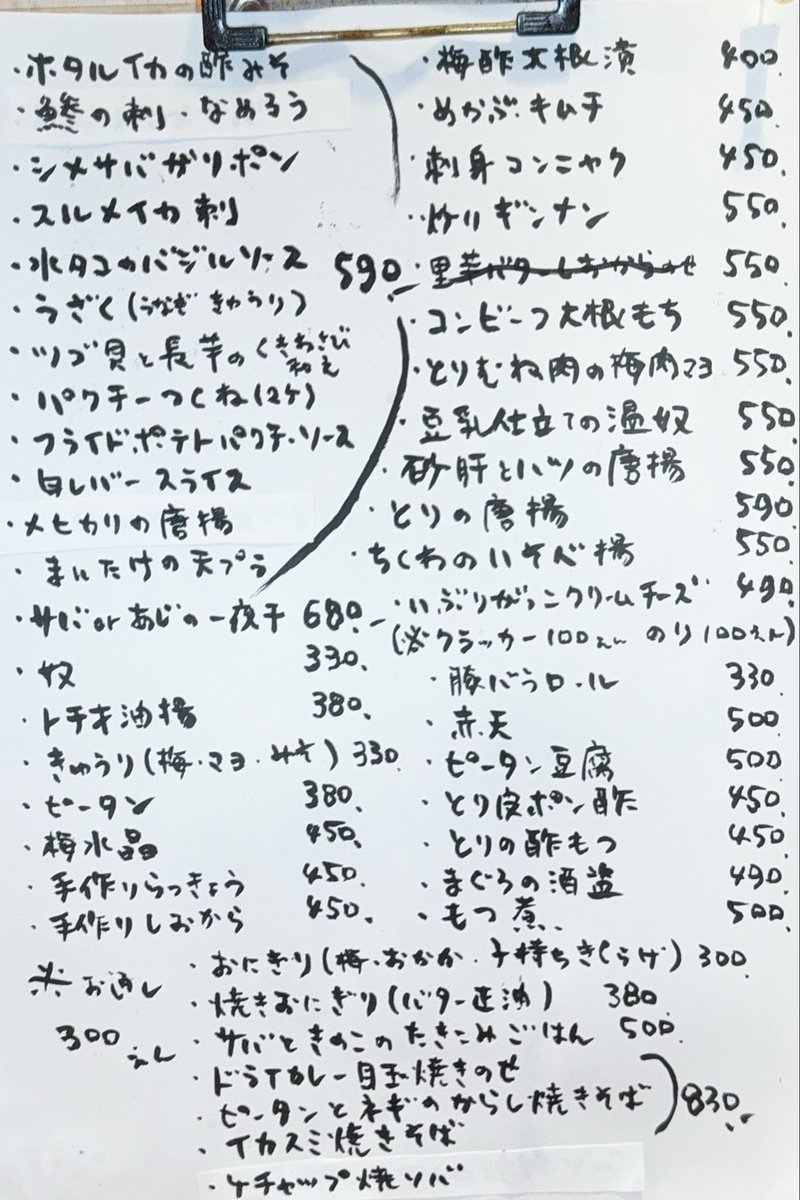 ・ホタルイカの酢みそ
・鯵の刺・なめろう
・シメサバガリポン
・スルメイカ刺
・水タコのバジルソース
・うざく(うなぎきゅうり)
・ツブ貝と長芋のくきわさび和え
590.-
・パクチーつくね(2ケ)
・フライドポテトパクチーソース
・白レバースライス
・メヒカリの唐揚
・まいたけの天プラ
・サバorあじの一夜干 680.-
・奴 330.
・トチオ油揚 380.
・きゅうり(梅・マヨ・みそ) 330
・ピータン 380.
・梅水晶 450.
・手作りらっきょう 450.
・手作りしおから 450.
※お通し
300えん
・梅酢大根漬 400.
・めかぶキムチ 450.
・刺身コンニャク 450.
・炒りギンナン 550.
・里芋バターしおからのせ 550.
・コンビーフ大根もち 550.
・とりむね肉の梅肉マヨ 550.
・豆乳仕立ての温奴 550.
・砂肝とハツの唐揚 550.
・とりの唐揚 590
・ちくわのいそべ揚 550.
・いぶりがっこクリームチーズ 490.
(※クラッカー100えん のり100えん)
・豚バラロール 330.
・赤天 500
・ピータン豆腐 500
・とり皮ポン酢 450.
・とりの酢もつ 450.
・まぐろの酒盗 490.
・もつ煮. 500.
・おにぎり(梅・おかか・子持ちきくらげ) 300.
・焼きおにぎり(バター正油) 380.
・サバときのこのたきこみごはん 500.
・ドライカレー目玉焼きのせ
・ピータンとネギのからし焼きそば
・イカスミ焼きそば
830.-
・ケチャップ焼ソバ